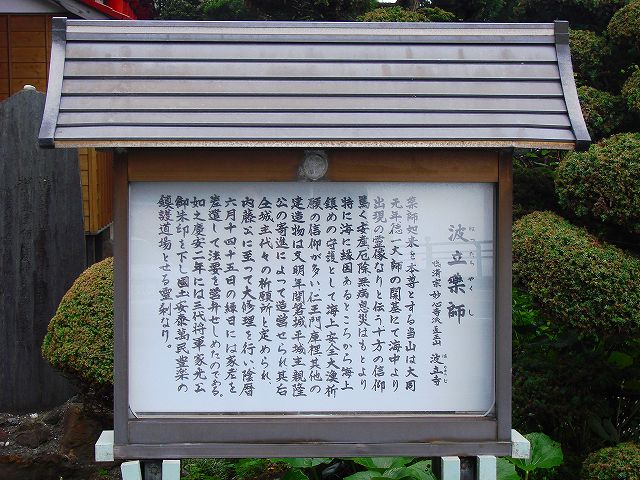 波立薬師
はたちやくし
臨済宗妙心寺派 医王山 波立寺
はりゅうじ
薬師如来を本尊とする当山は大同
元年徳一大師の開基にて海中より
出現の霊像なりと伝う十方の信仰
篤く安産厄除無病息災はもとより
特に海に縁因あるところから海上
鎮めの守護として海上安全大漁祈
願の信仰が多い仁王門庫裡其他の
建造物は文明年間磐城平城主親隆
公の寄進によって造営せられ其右
全城主代々の祈願所と定められ
内藤公に至って大修理を行い陰暦
六月十四十五日の縁日には家老を
差遣して法要を営弁せしめたのである。
如之慶安二年には三代将軍家光公
御朱印を下し国土安泰萬民豊楽の
鎮護道場とせる霊刹なり。